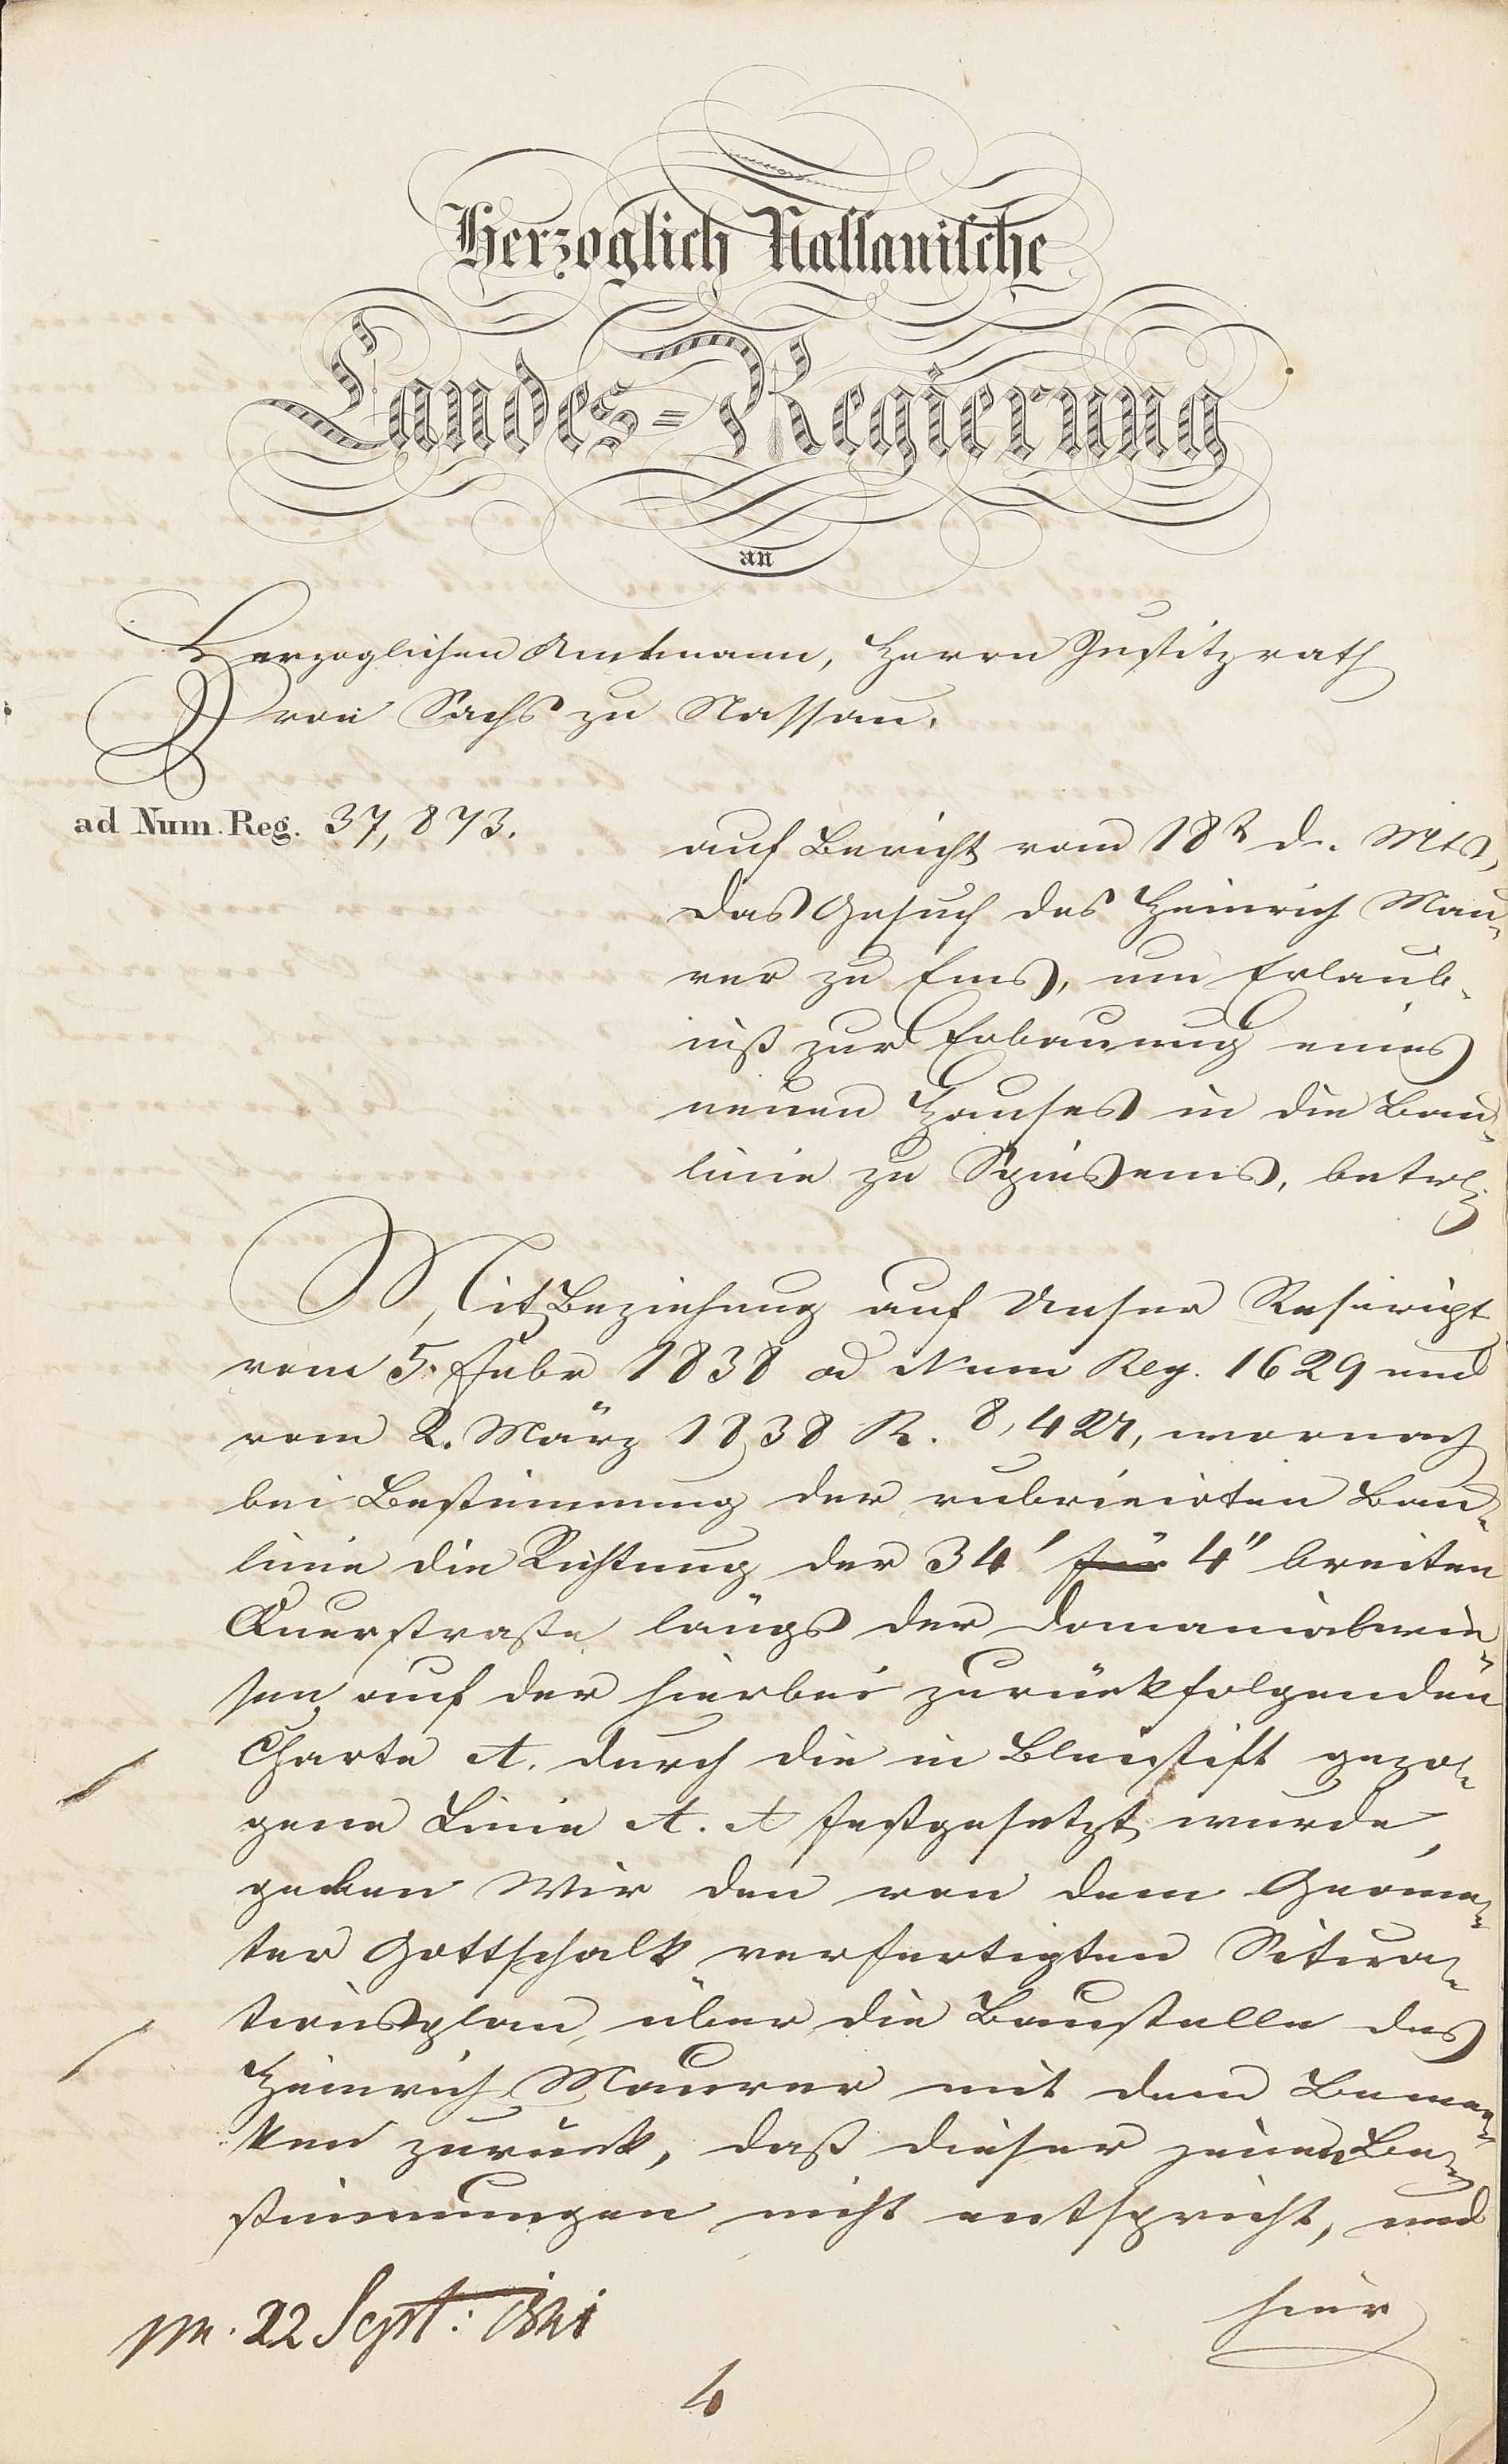 Herzoglich Nassauische
Landes-Regierung
an
Herzoglichen Amtmann, Herrn Justitzrath
von Sachs zu Nassau.
ad Num. Reg. 37,873.
auf Bericht vom 18t d. Mts,
das Gesuch des Heinrich Mau-
rer zu Ems, um Erlaub-
niß zur Erbauung eines
neuen Hauses in die Bau-
linie zu Spiesems, betr.
Mit Beziehung auf Unser Rescript
vom 5. Febr 1838 ad Num Reg. 1629 und
vom 2. März 1838 R. 8,427, wornach
bei Bestimmung der rubricirten Bau-
linie die Richtung der 34' für 4" breiten
Querstraße längs der Domanialwie-
sen auf der hierbei zurückfolgenden
Charte A. durch die in Bleistift gezo-
gene Linie A. A festgesetzt wurde,
geben Wir den von dem Geome-
ter Gottschalk verfertigten Situa-
tionsplan über die Baustelle des
Heinrich Maurer mit dem Bemer-
ken zurück, daß dieser jenen Be-
stimmungen nicht entspricht, und
hier
pr. 22 Sept: 1841
4